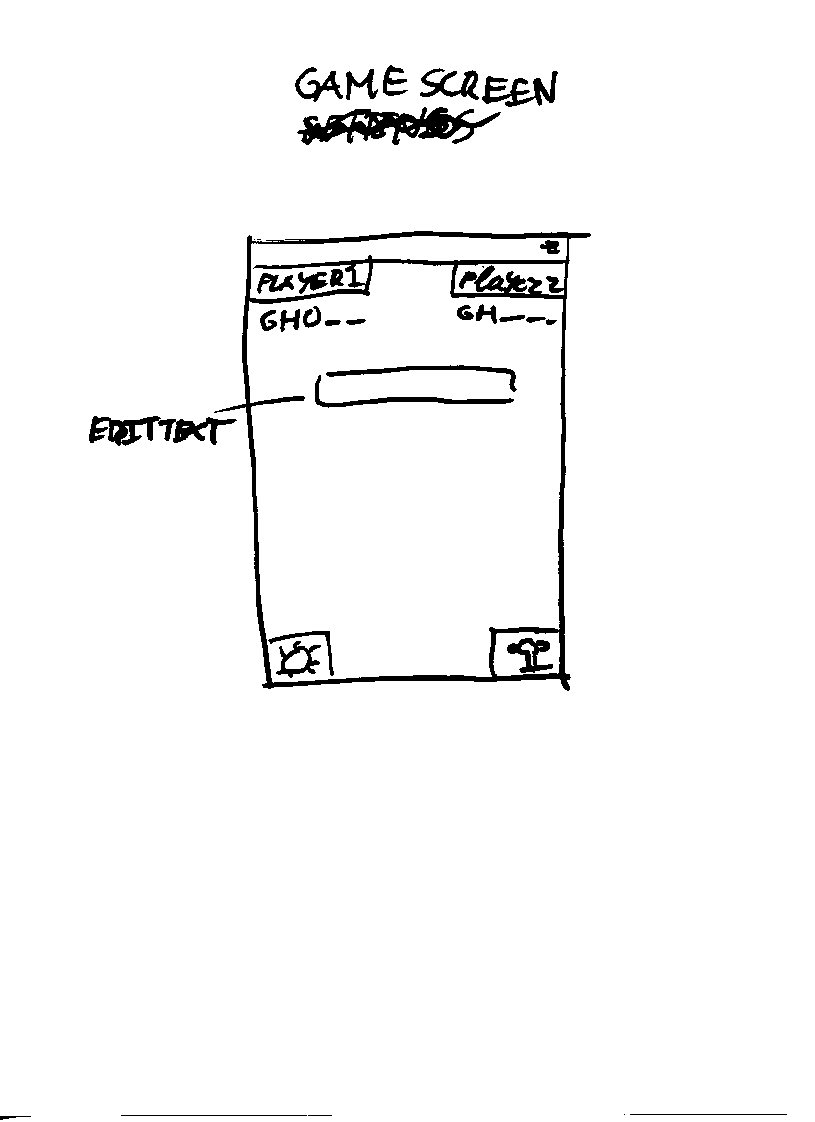 GAME SCREEN
PLAYER1 Player 2
GHO__ GH___
EDITTEXT